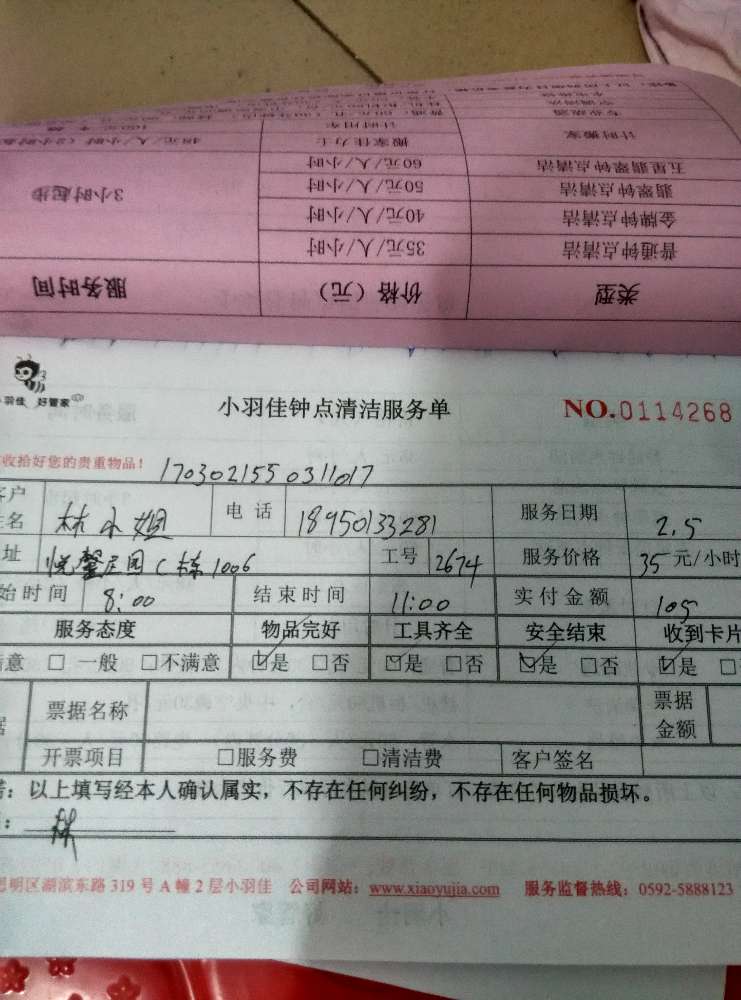 计时搬家 搬家佳力士 48元/人/小时
五星翡翠钟点清洁 60元/人/小时
翡翠钟点清洁 50元/人/小时 3小时起步
金牌钟点清洁 40元/人/小时
普通钟点清洁 35元/人/小时
类型 价格（元） 服务时间
羽佳 好管家
小羽佳钟点清洁服务单 NO.0114268
收拾好您的贵重物品！ 170302155 0311017
客户姓名 林小姐 电话 18950133281 服务日期 2.5
址 悦馨花园C栋1006 工号 2674 服务价格 35元/小时
始时间 8:00 结束时间 11:00 实付金额 105
服务态度 物品完好 工具齐全 安全结束 收到卡片
意 □一般 □不满意 ☑是 □否 ☑是 □否 ☑是 □否 ☑是 □
票据名称 票据金额
开票项目 □服务费 □清洁费 客户签名
：以上填写经本人确认属实，不存在任何纠纷，不存在任何物品损坏。
：林
思明区湖滨东路319号A幢2层小羽佳 公司网站：www.xiaoyujia.com 服务监督热线：0592-5888123